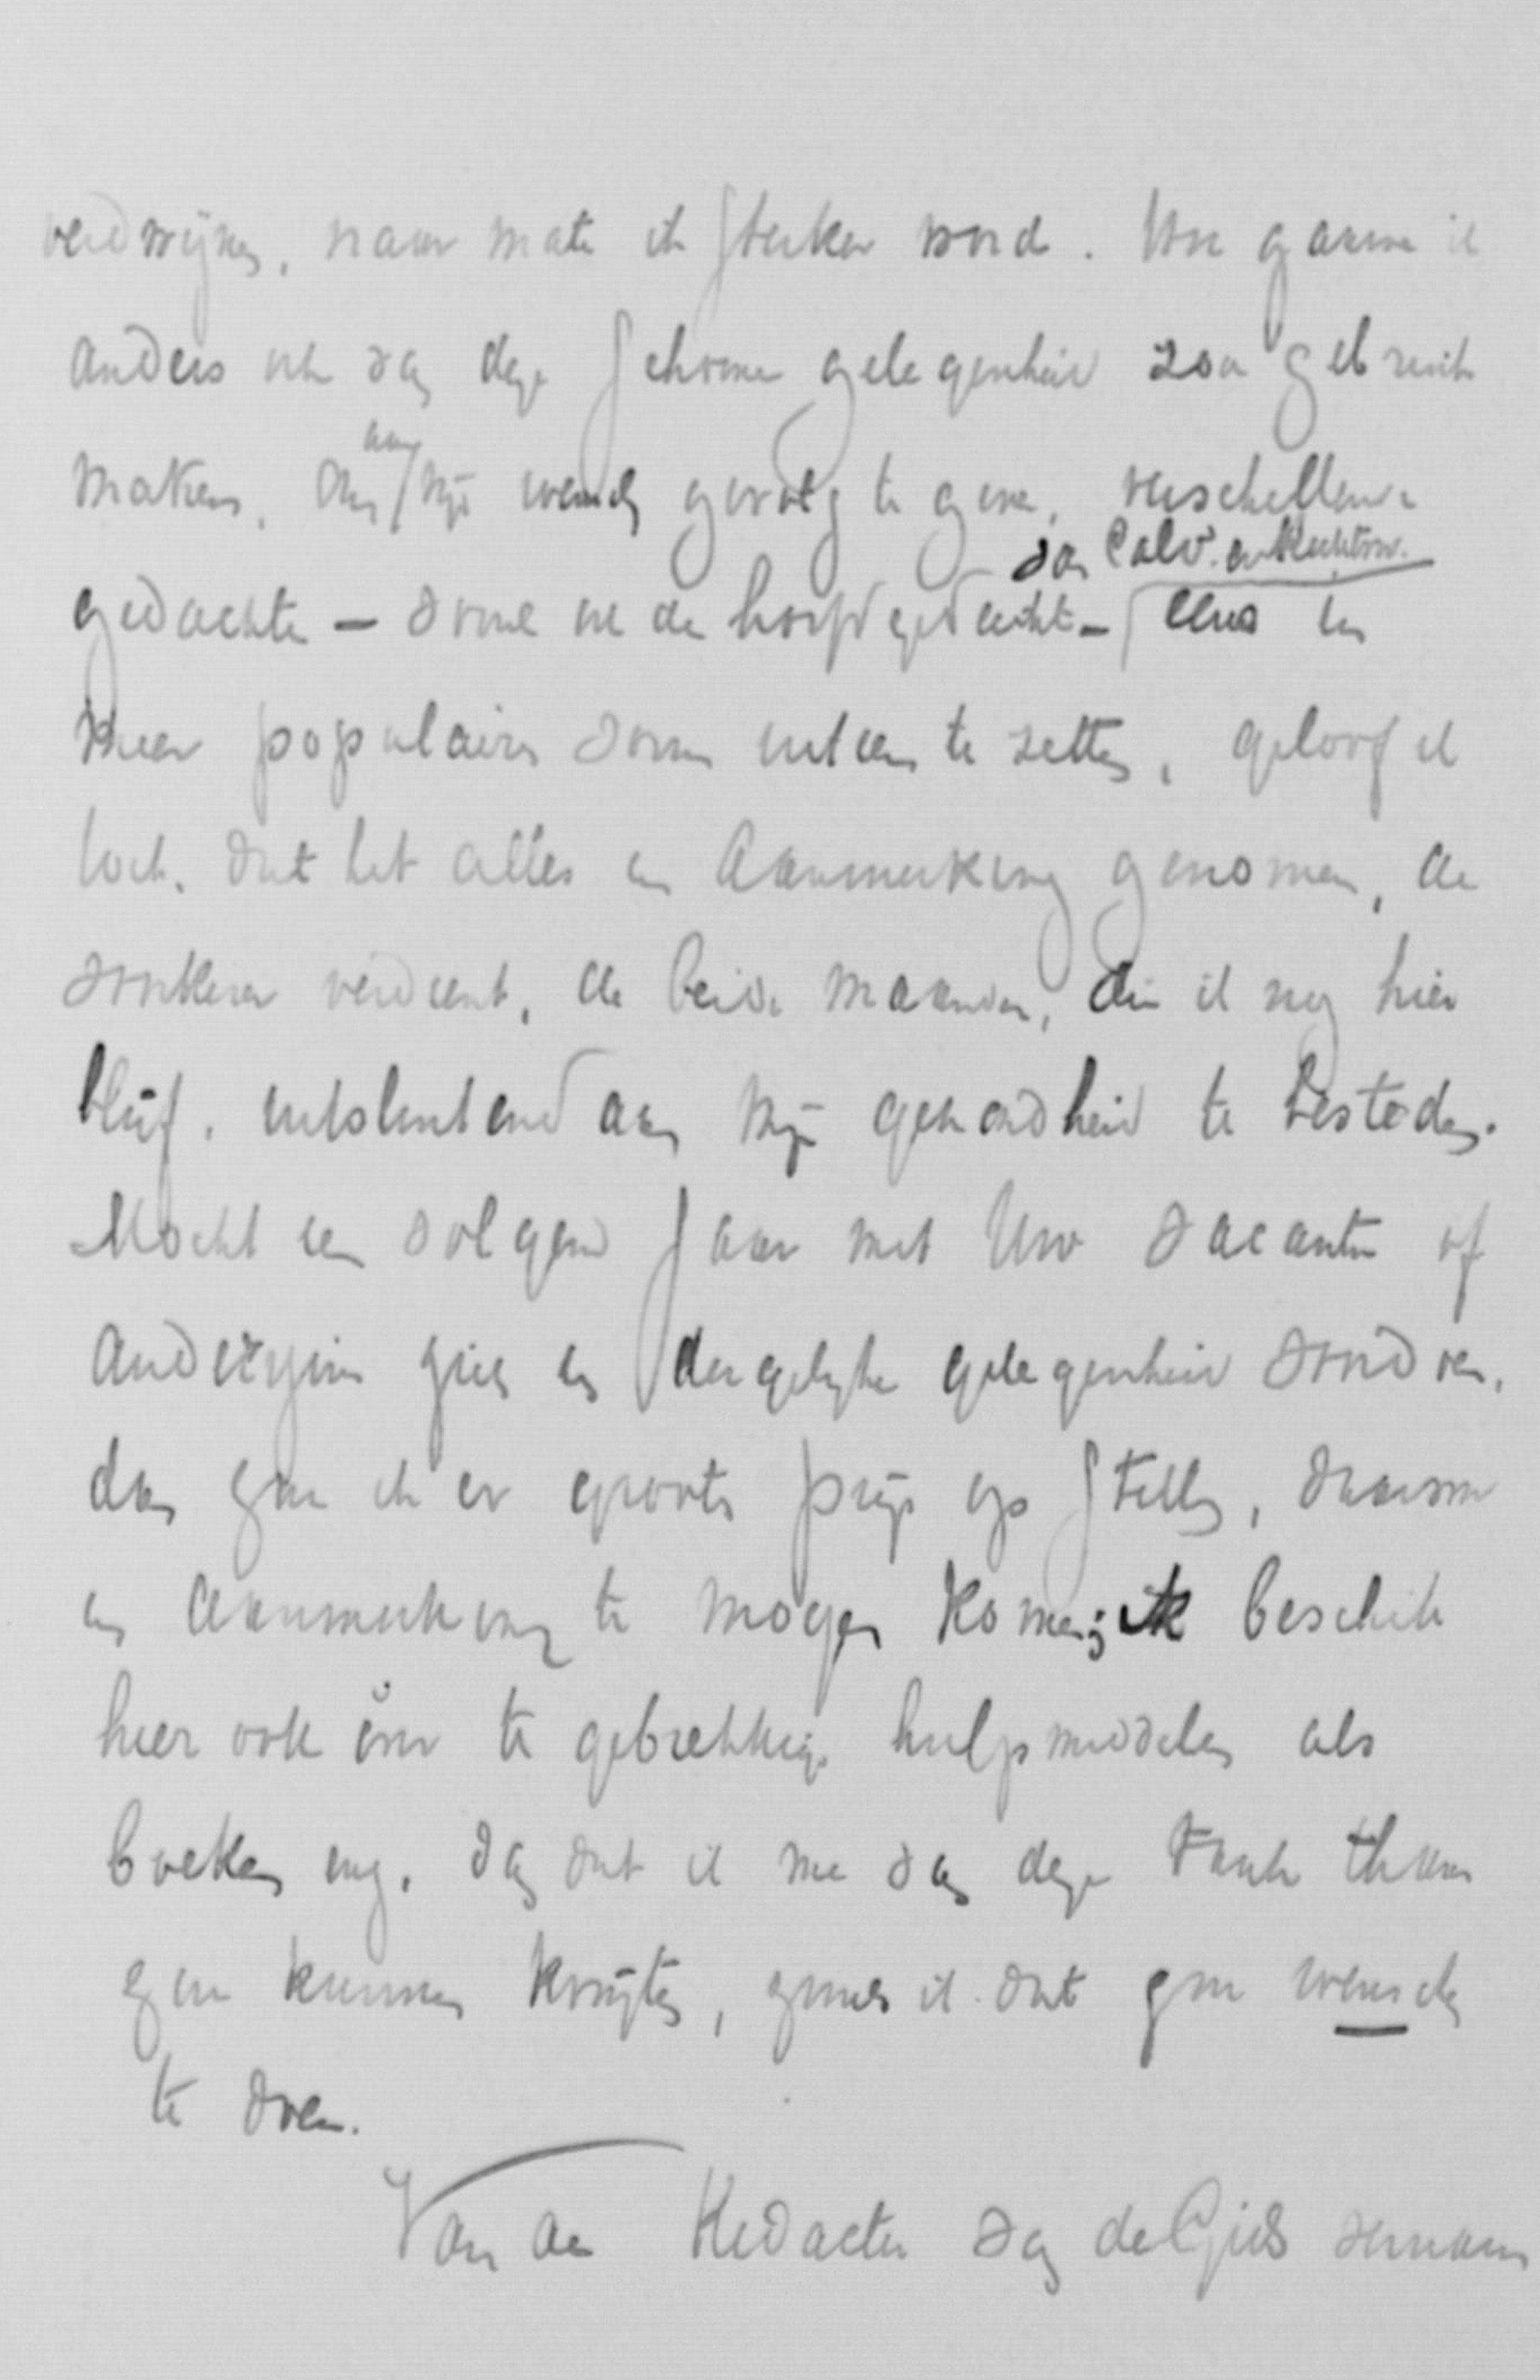 verdwijnen, naar mate ik sterker word. Hoe gaarne ik
anders ook van deze schoone gelegenheid zou gebruik
maken, om aan mijn wensch gevolg te geven, verschillende
gedachten – vooral ook de hoofdgedachte – van Calv. en Rechtsw. eens in
meer populairen vorm uiteen te zetten, geloof ik
toch, dat het alles in aanmerking genomen, de
voorkeur verdient, de beide maanden, die ik nog hier
blijf, uitsluitend aan mijn gezondheid te besteden.
Mocht een volgend jaar met Uw vacantie of
anderszins zich een dergelijke gelegenheid voordoen,
dan zou ik er grooten prijs op stellen, daarvoor
in aanmerking te mogen komen; ik beschik
hier ook over te gebrekkige hulpmiddelen als
boeken enz. dan dat ik me van deze taak thans
zou kunnen kwijten, zooals ik dat zou wenschen
te doen.
Van de Redactie van de Gids vernam